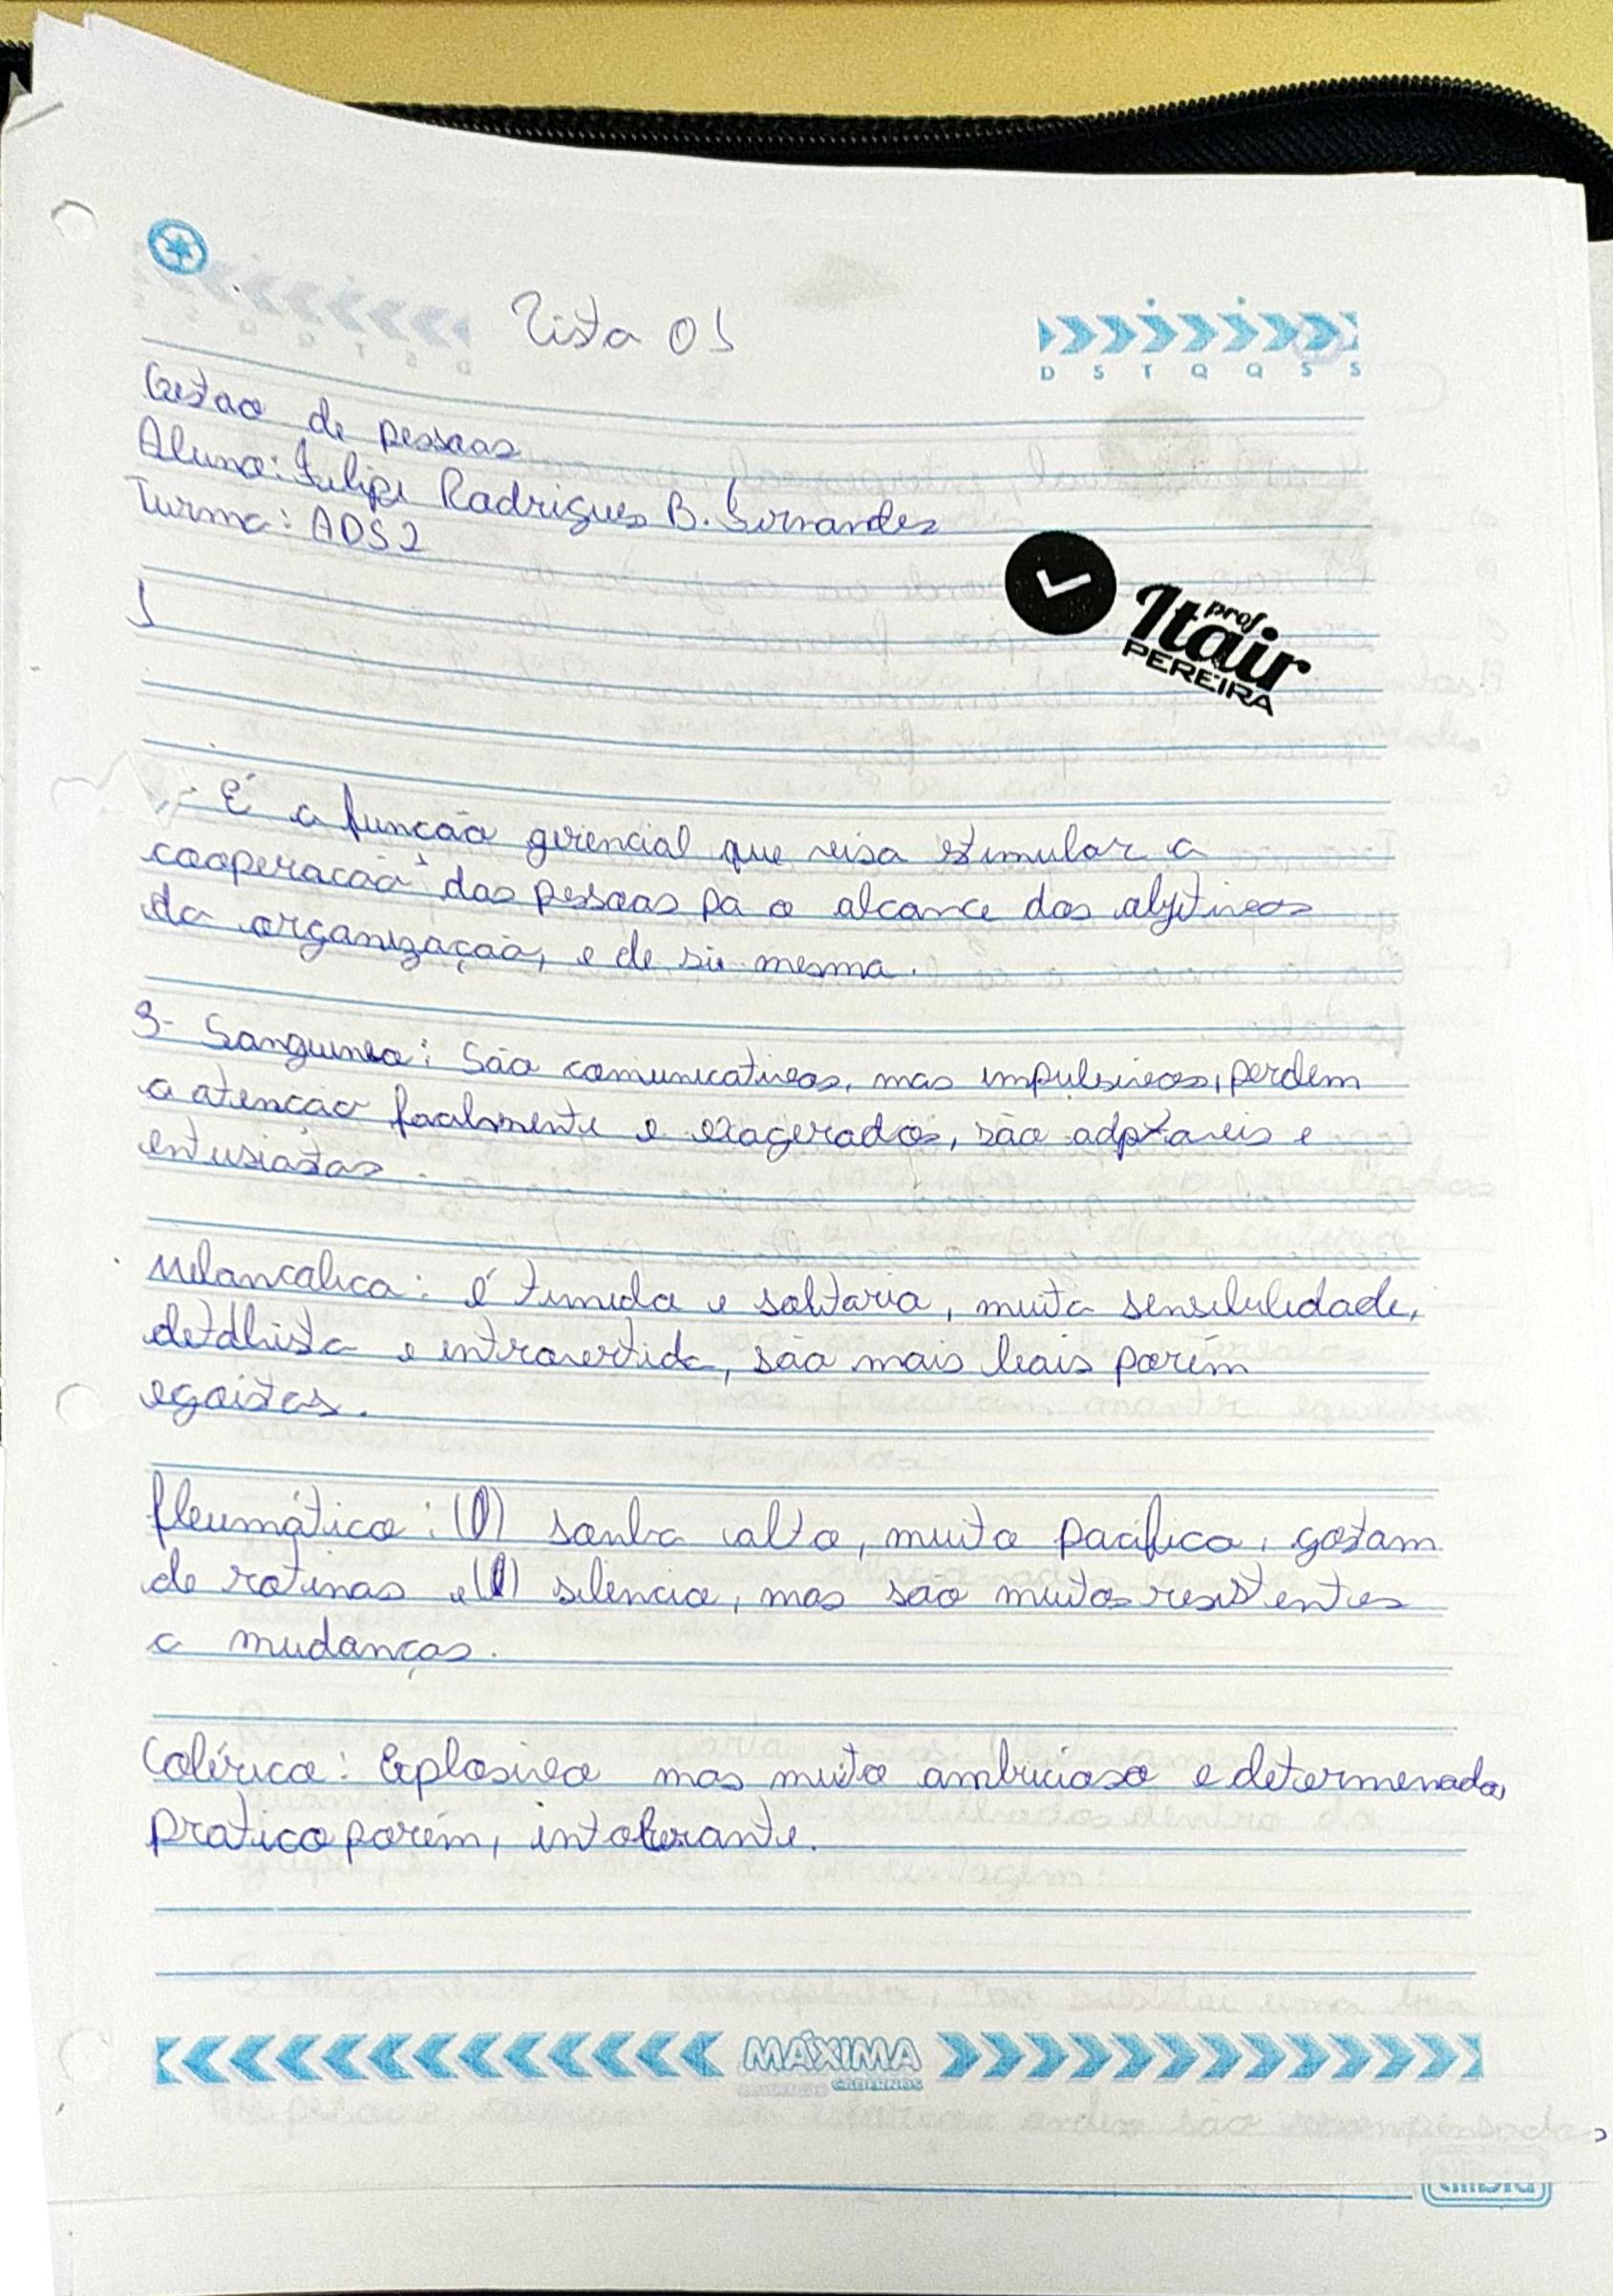 Lista 01
D S T Q Q S S
Gestao de pessoas
Aluno: Felipe Rodrigues B. Fernandes
Turma: ADS2
1
prof
Itair
PEREIRA
- É a funcão gerencial que visa estimular a
cooperacão das pessoas pa o alcance dos objetivos
da organização, e de si mesma.
3- Sanguineo: São comunicativos, mas impulsivos, perdem
a atenção facilmente e exagerados, são adptaveis e
entusiastas
Melancolica: é timida e solitaria, muita sensibilidade,
detalhista e introvertida, são mais leais porém
egoistas.
fleumático: sonha alto, muito pacífico, gostam
de rotinas e silencio, mas são muitos resistentes
a mudanças.
Colérico: Explosivo mas muito ambicioso e determinado,
pratico porém, intolerante.
MÁXIMA
CADERNOS